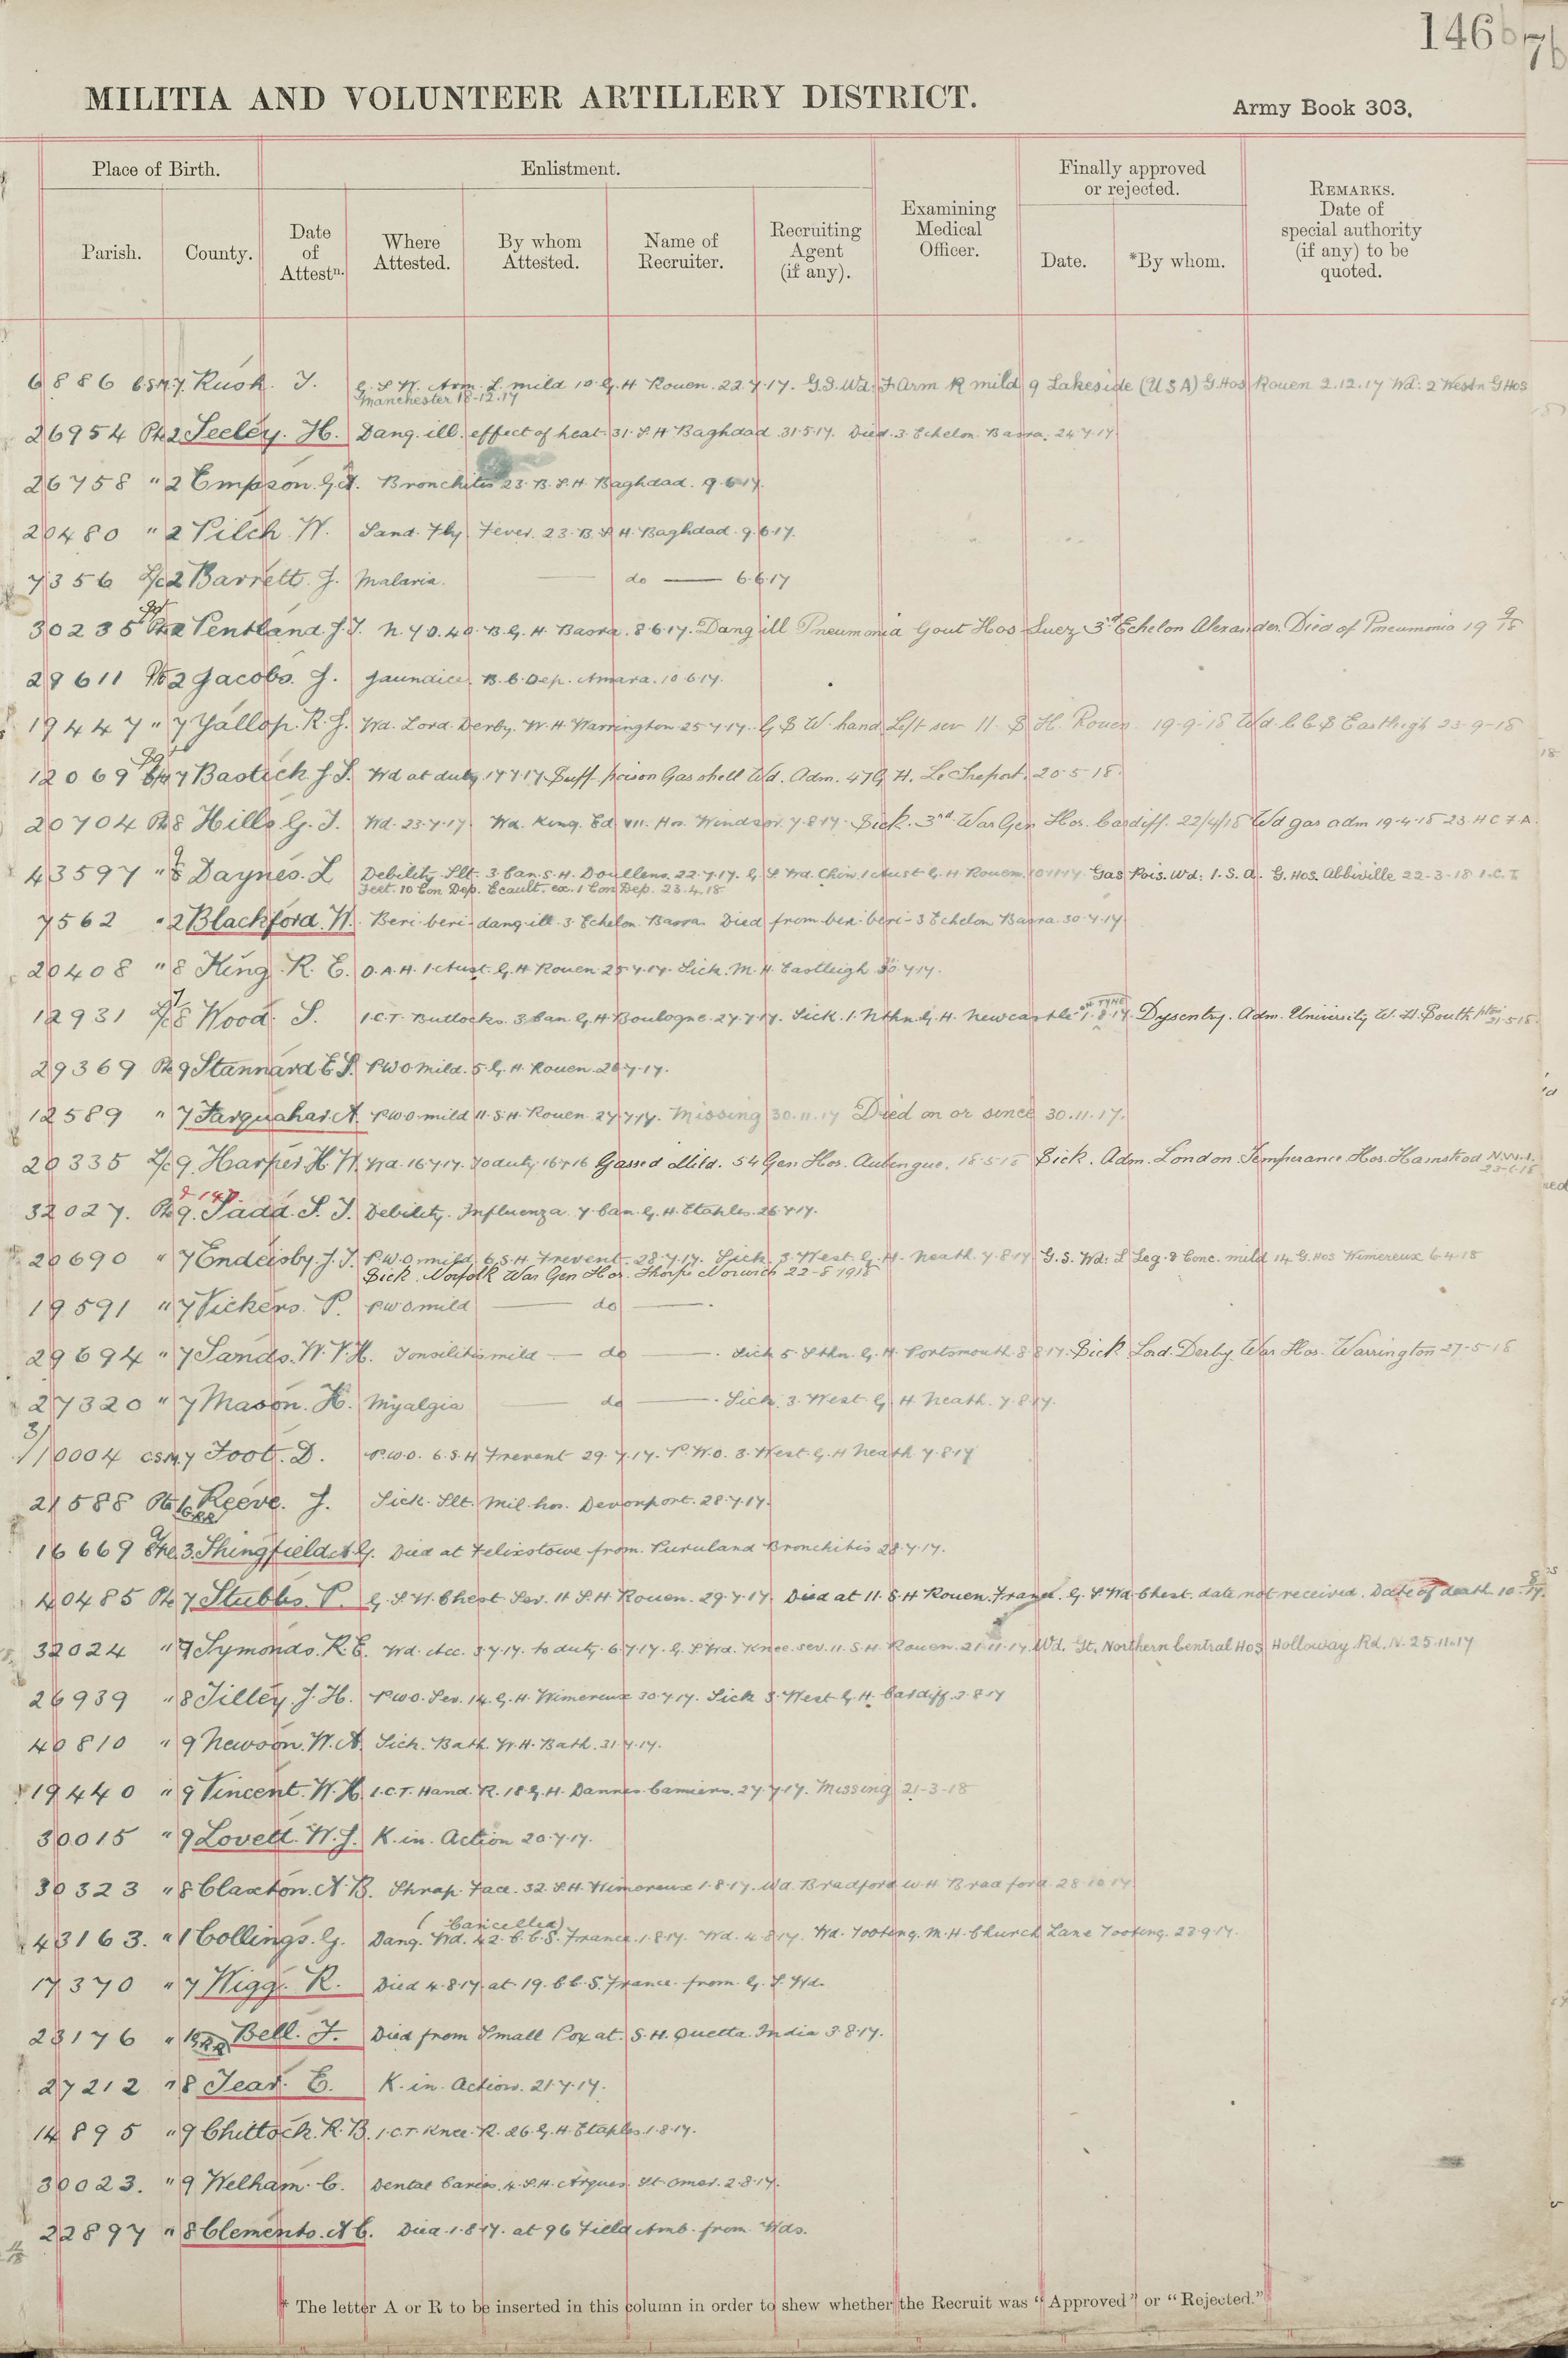 146b
7b
MILITIA AND VOLUNTEER ARTILLERY DISTRICT.
Army Book 303.
Place of Birth.
Enlistment.
Finally approved or rejected.
Parish.
County.
Date of Attestn.
Where Attested.
By whom Attested.
Name of Recruiter.
Recruiting Agent (if any).
Examining Medical Officer.
Date.
*By whom.
REMARKS. Date of special authority (if any) to be quoted.
6886 CSM 7 Rush. J. G.S.W. Arm. L. mild 10. G.H Rouen. 22.7.17. G.S. Wd. F. Arm R mild 9 Lakeside (USA) G.Hos Rouen 2.12.17 Wd: 2 Westn G Hos
Manchester 18-12-17
26954 Pte 2 Seeley. H. Dang. ill. effect of heat. 31. S.H. Baghdad. 31.5.17. Died. 3. Echelon. Basra. 24.7.17.
26758 " 2 Empson. G.A. Bronchitis 23. B.S.H. Baghdad. 9.6.17.
20480 " 2 Pilch W. Sand. Fly Fever. 23. B.S.H. Baghdad. 9.6.17.
7356 L/c 2 Barrett. J. Malaria. — do — 6.6.17
30235 Pte 2 Pentland J.J. N.Y.D. 40. B.G.H. Basra. 8.6.17. Dang ill Pneumonia Gout Hos Suez 3rd Echelon Alexander. Died of Pneumonia 19 9/18
29611 Pte 2 Jacobs. J. Jaundice. B.B. Dep. Amara. 10.6.17.
19447 " 7 Yallop. R.J. Wd. Lord. Derby. W.H. Warrington 25.7.17. G S W. hand Left sev 11 S H. Rouen. 19-9-18 Wd. C C S Eastleigh 23-9-18
12069 7 Bastick J.S. Wd at duty 17.7.17. Suff poison Gas shell Wd. Adm. 47 G.H. Le Treport. 20-5-18.
20704 Pte 8 Hills G.J. Wd. 23.7.17. Wd. King. Ed VII. Hos. Windsor. 7.8.17. Sick. 3rd War Gen Hos. Cardiff. 22/4/18 Wd gas adm 19-4-18 23. H C F A.
43597 " 8 Daynes. L Debility. Slt. 3 Can. S.H. Doullens. 22.7.17. G S Wd. Chin. 1 Aust G.H. Rouen. Gas Pois. Wd: 1. S.A. G. Hos. Abbiville 22-3-18 I.C.T
Feet. 10 Con Dep. Ecault. ex. 1 Con Dep. 23.4.18
7562 " 2 Blackford. W. Beri-beri dang-ill. 3. Echelon. Basra. Died from beri-beri- 3 Echelon Basra 30.7.17
20408 " 8 King R.E. D.A.H. 1 Aust. G.H. Rouen. 25.7.17. Sick. M.H. Eastleigh 30.7.17.
12931 L/c 8 Wood. S. I.C.T. Buttocks. 3 Can. G.H. Boulogne. 27.7.17. Sick. 1. Nthn. G.H. Newcastle on TYNE 1.8.17. Dysentry. Adm. University W.H. South pton 21-5-18.
29369 Pte 9 Stannard E S. P W O mild. 5. G.H. Rouen. 20.7.17.
12589 " 7 Farquahar A. P W O mild 11. S.H. Rouen. 27.7.17. Missing 30.11.17 Died on or since 30.11.17.
20335 L/c 9. Harper H.W. Wd. 16.7.17. To duty 16.7.16 Gassed Mild. 54 Gen Hos. Aubengue. 18.5.18 Sick. Adm. London Temperance Hos. Hamstead N.W.1.
23-6-18
32027. Pte 9. Sadd. S.J. Debility. Influenza. 7 Can. G.H. Etaples. 26.7.17.
20690 " 7 Endersby. J.J. P.W.O. mild. 6. S.H. Frevent. 28.7.17. Sick. 3. West. G.H. Neath. 7.8.17 G.S. Wd: L Leg. & Conc. mild 14 G. Hos Wimereux 6-4-18
Sick. Norfolk War Gen Hos. Thorpe Norwich 22-5-1918
19591 " 7 Vickers. P. P W O mild — do —.
29694 " 7 Sands. W.V.H. Tonsilitis mild — do —. Sick 5 Sthn. G.H. Portsmouth 8.8.17. Sick Lord Derby War Hos. Warrington 27-5-18
27320 " 7 Mason. H. Myalgia — do —. Sick. 3. West G.H Neath. 7.8.17.
3/10004 CSM. 7 Foot. D. P.W.O. 6.S.H Frevent 29.7.17. P.W.O. 3. West. G.H Neath 7.8.17
21588 Pte Reeve. J. Sick. Slt. Mil. hos. Devonport. 28.7.17.
16669 Pte 3. Shingfield A.G. Died at Felixstowe from. Puruland Bronchitis 28.7.17.
40485 Pte 7 Stubbs. P. G.S.W. Chest Sev. 11 S.H Rouen. 29.7.17. Died at 11. S.H Rouen. France. G.S. Wd Chest. date not received. Date of death 10-8-17.
32024 " 7 Symonds. R.E. Wd. Acc. 3.7.17. to duty 6.7.17. G.S. Wd. Knee. sev. 11. S.H. Rouen. 21.11.17. Wd. Gt. Northern Central Hos Holloway Rd. N. 25.11.17
26939 " 8 Tilley. J.H. P W O. Sev. 14. G.H. Wimereux 30.7.17. Sick 3. West G.H. Cardiff. 3.8.17
40810 " 9 Newson. W.A. Sick. Bath. W.H. Bath. 31.7.17.
19440 " 9 Vincent. W.H. I.C.T. Hand. R. 18. G.H. Dannes Camiers. 27.7.17. Missing 21-3-18
30015 " 9 Lovett. W.J. K. in. Action 20.7.17.
30323 " 8 Claxton. A.B. Shrap. Face. 32. S.H. Wimereux 1.8.17. Wd. Bradford W.H. Bradford. 28.10.17.
(Cancelled)
43163. " 1 Collings. G. Dang. Wd. 42. C.C.S. France. 1.8.17. Wd. 4.8.17. Wd. Tooting. M.H. Church Lane Tooting. 23.9.17.
17370 " 7 Wigg. R. Died 4.8.17. at 19. C.C.S. France. from. G.S. Wd.
23176 " Bell. F. Died from Small Pox at. S.H. Quetta. India 3.8.17.
27212 " 8 Tear. E. K. in. Action. 21.7.17.
14895 " 9 Chittock. R.B. I.C.T. Knee. R. 26. G.H. Etaples. 1.8.17.
30023. " 9 Welham. C. Dental Caries. 4. S.H. Arques. St. Omer. 2.8.17.
22897 " 8 Clements. A C. Died. 1.8.17. at 96 Field Amb. from Wds.
* The letter A or R to be inserted in this column in order to shew whether the Recruit was "Approved" or "Rejected."